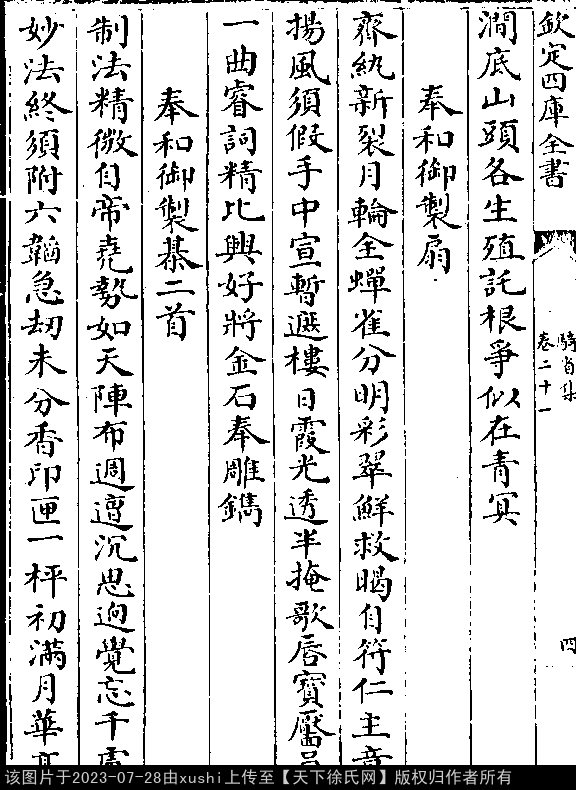 欽定四庫全書
騎省集
卷二十一
四
澗底山頭各生殖託根爭似在青冥
奉和御製扇
齊紈新裂月輪全蟬雀分明彩翠鮮救暍自符仁主意
揚風須假手中宣暫遮樓日霞光透半掩歌唇寶靨
一曲睿詞精比興好將金石奉雕鐫
奉和御製棊二首
制法精微自帝堯勢如天陣布週遭沉思逈覺忘千慮
妙法終須附六韜急刼未分香印匣一枰初滿月華高
该图片于2023-07-28由xushi上传至【天下徐氏网】版权归作者所有